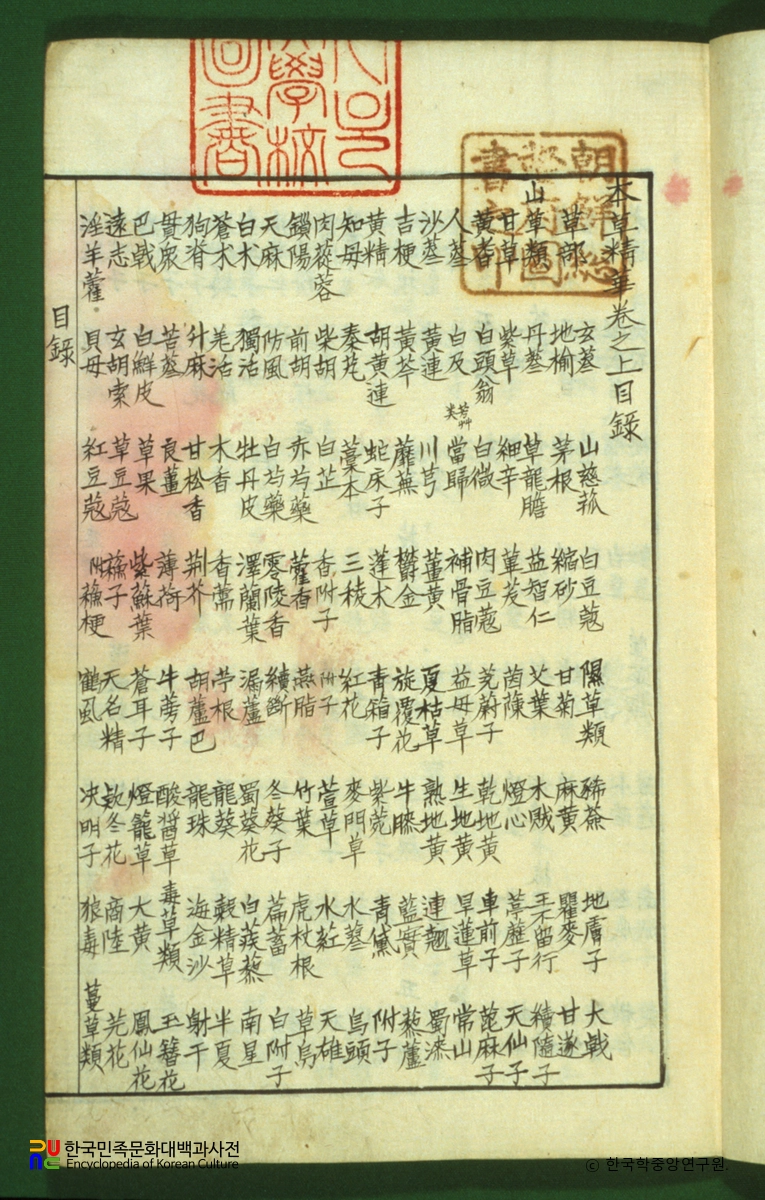 本草精華卷之上目錄
草部 山草類 甘草 黃耆 人蔘 沙蔘 吉梗 黃精 知母 肉蓯蓉 鎖陽 天麻 白朮 蒼朮 狗脊 貫衆 巴戟 遠志 淫羊藿
玄蔘 地楡 丹蔘 紫草 白頭翁 白及 黃連 黃芩 胡黃連 秦艽 柴胡 前胡 防風 獨活 羌活 升麻 苦蔘 白鮮皮 玄胡索 貝母
山慈菰 茅根 草龍膽 細辛 白微 芳艸类 當歸 川芎 蘼蕪 蛇床子 藁本 白芷 赤芍藥 白芍藥 牡丹皮 木香 甘松香 良薑 草果 草豆蔻 紅豆蔻
白豆蔻 縮砂 益智仁 蓽茇 肉豆蔻 補骨脂 薑黃 欝金 蓬朮 三稜 香附子 藿香 零陵香 澤蘭葉 香薷 荊芥 薄荷 紫蘇葉 蘇子 附蘇梗
隰草類 甘菊 艾葉 茵蔯 茺蔚子 益母草 夏枯草 旋覆花 青箱子 紅花 附子 燕脂 續斷 漏蘆 苧根 胡蘆巴 牛蒡子 蒼耳子 天名精 鶴虱
豨薟 麻黃 木賊 燈心 乾地黃 生地黃 熟地黃 牛膝 紫菀 麥門草 萱草 竹葉 冬葵子 蜀葵花 龍葵 龍珠 酸醬草 燈籠草 欵冬花 决明子
地膚子 瞿麥 王不留行 葶藶子 車前子 旱蓮草 連翹 藍實 青黛 水蓼 水紅 虎杖根 萹蓄 白蒺藜 穀精草 海金沙 毒草類 大黃 商陸 狼毒
大戟 甘遂 續隨子 天仙子 蓖麻子 常山 蜀漆 藜蘆 附子 烏頭 天雄 草烏 白附子 南星 半夏 射干 玉簪花 鳳仙花 芫花 蔓草類
目錄
한국민족문화대백과사전
Encyclopedia of Korean Culture
ⓒ 한국학중앙연구원.